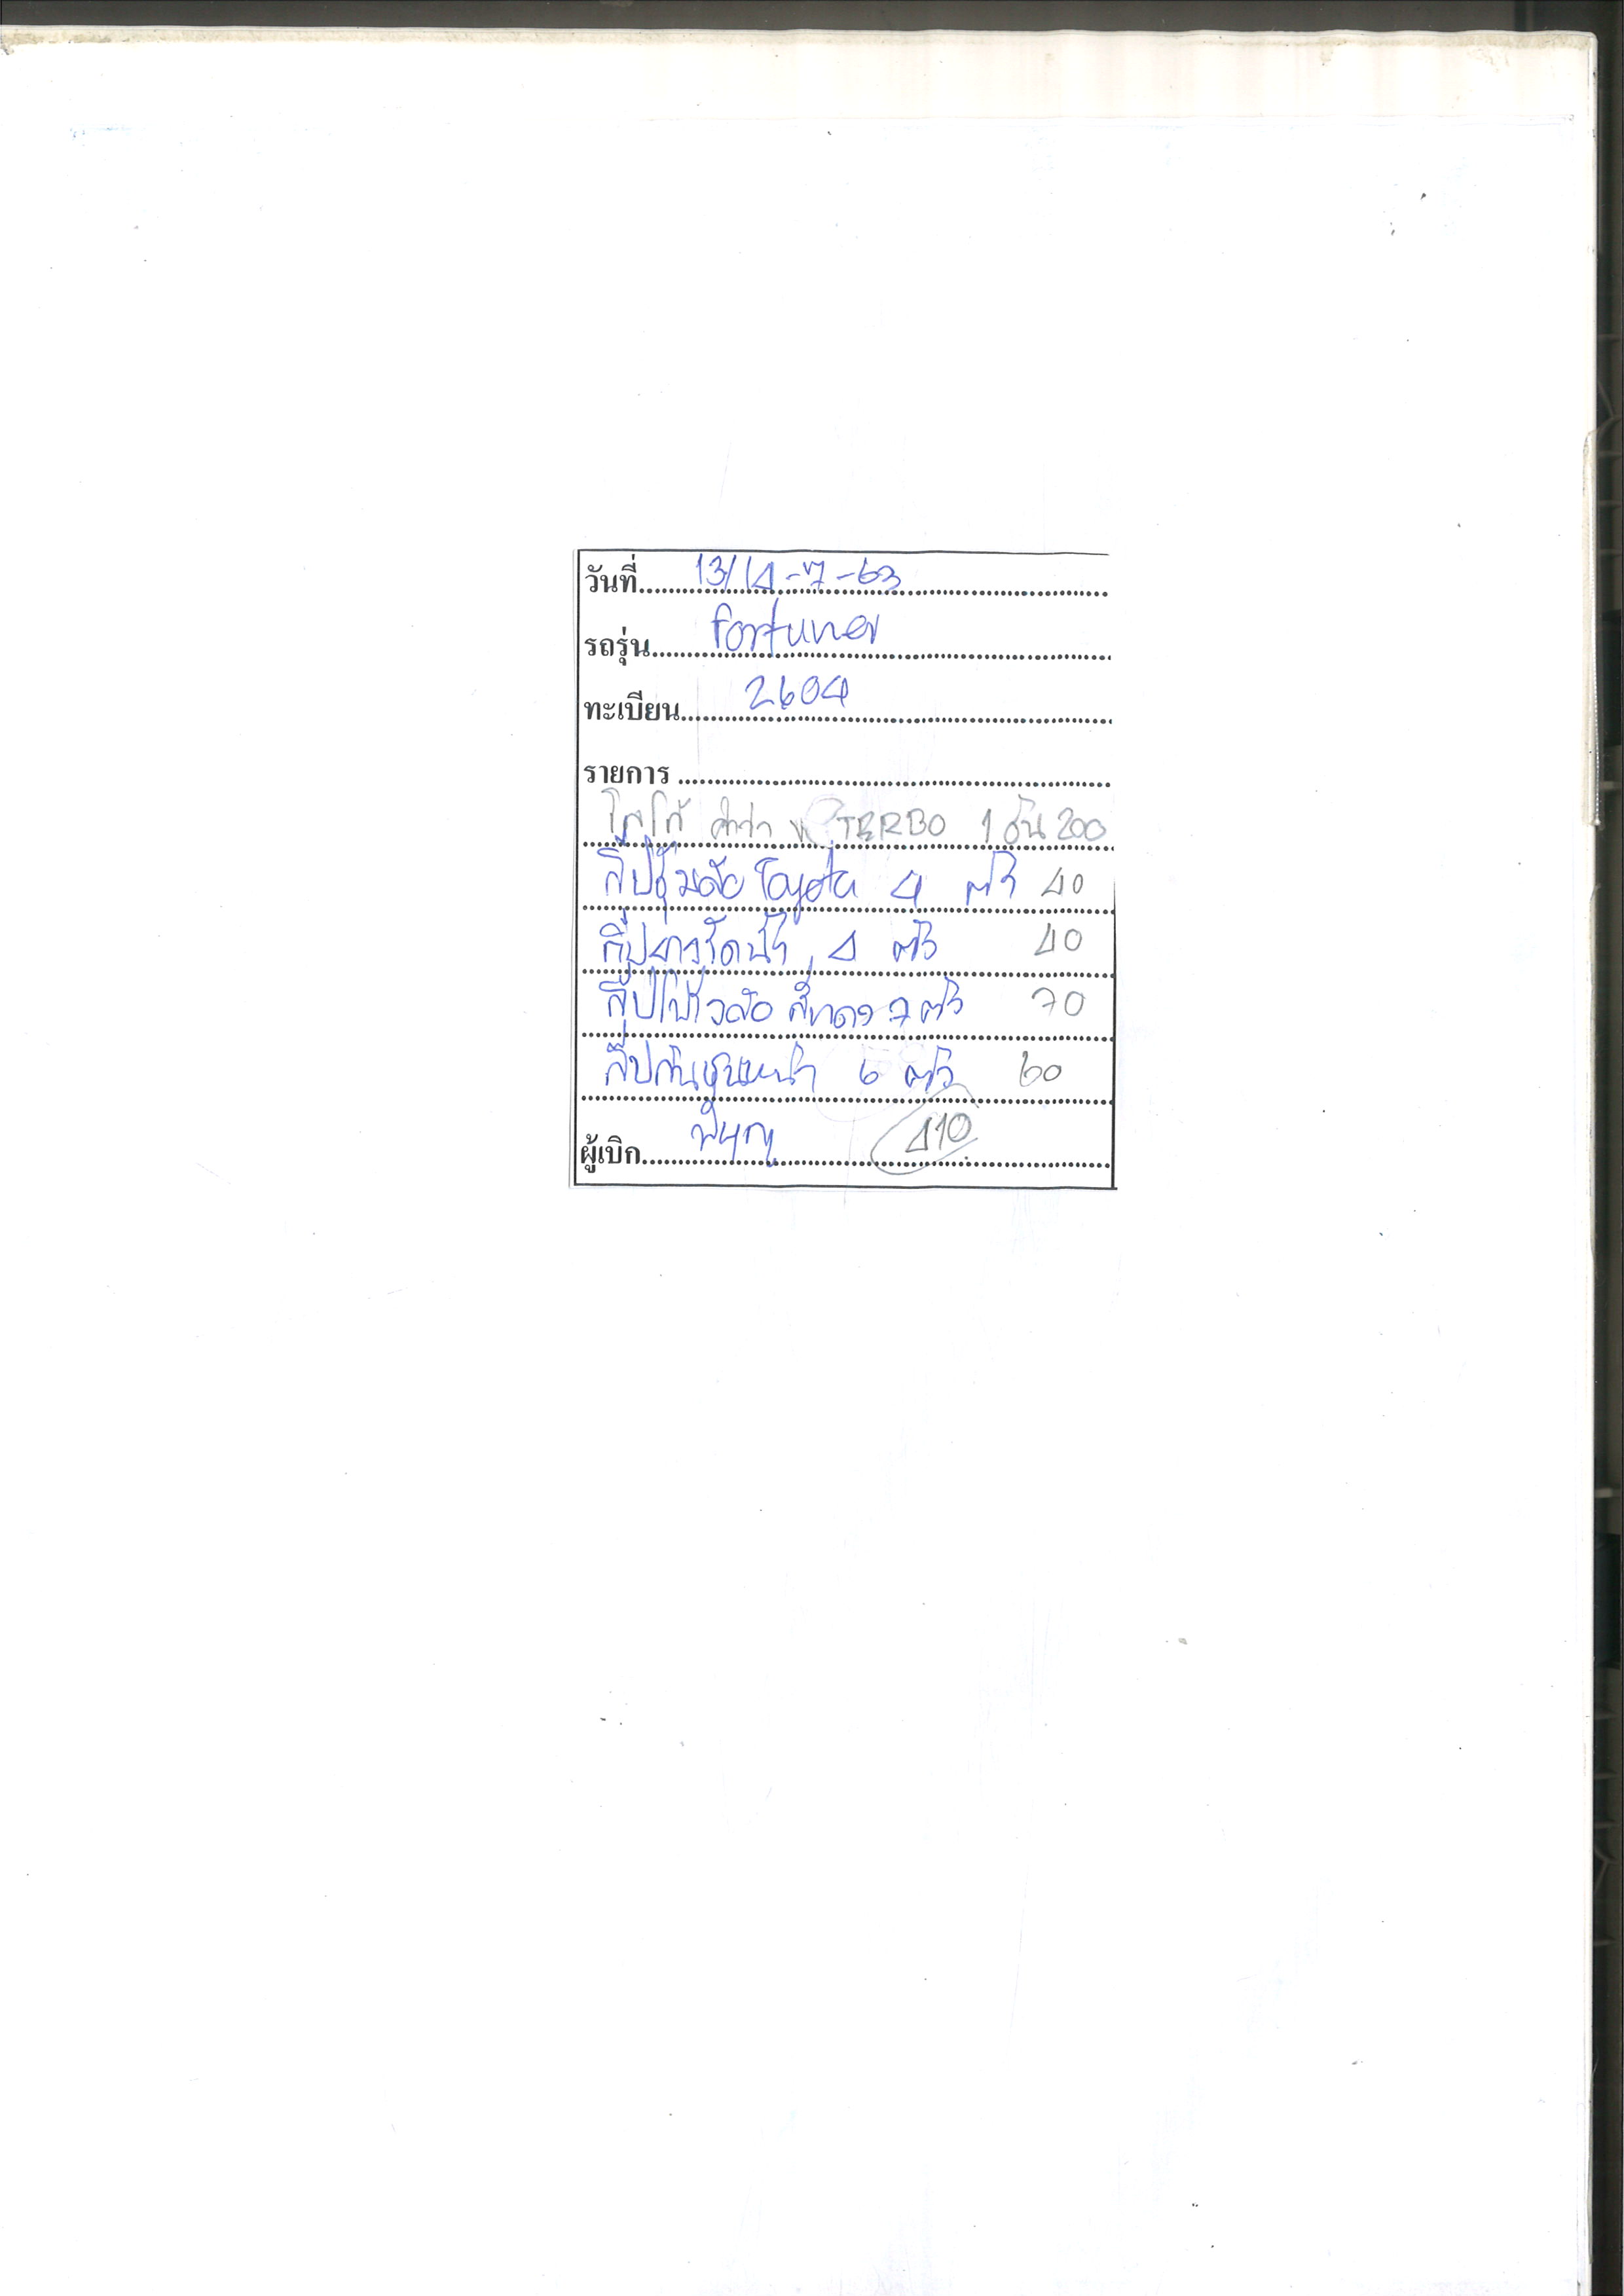 วันที่ 13/14-7-63
รถรุ่น Fortuner
ทะเบียน 2604
รายการ
โลโก้ คำว่า TERBO 1 อัน 200
กิ๊ปซุ้มล้อ Toyota 4 ตัว 40
กิ๊ปยางรีดน้ำ 4 ตัว 40
กิ๊ปโป่งล้อ สีแดง 7 ตัว 70
กิ๊ปกันชนหน้า 6 ตัว 60
ผู้เบิก 410